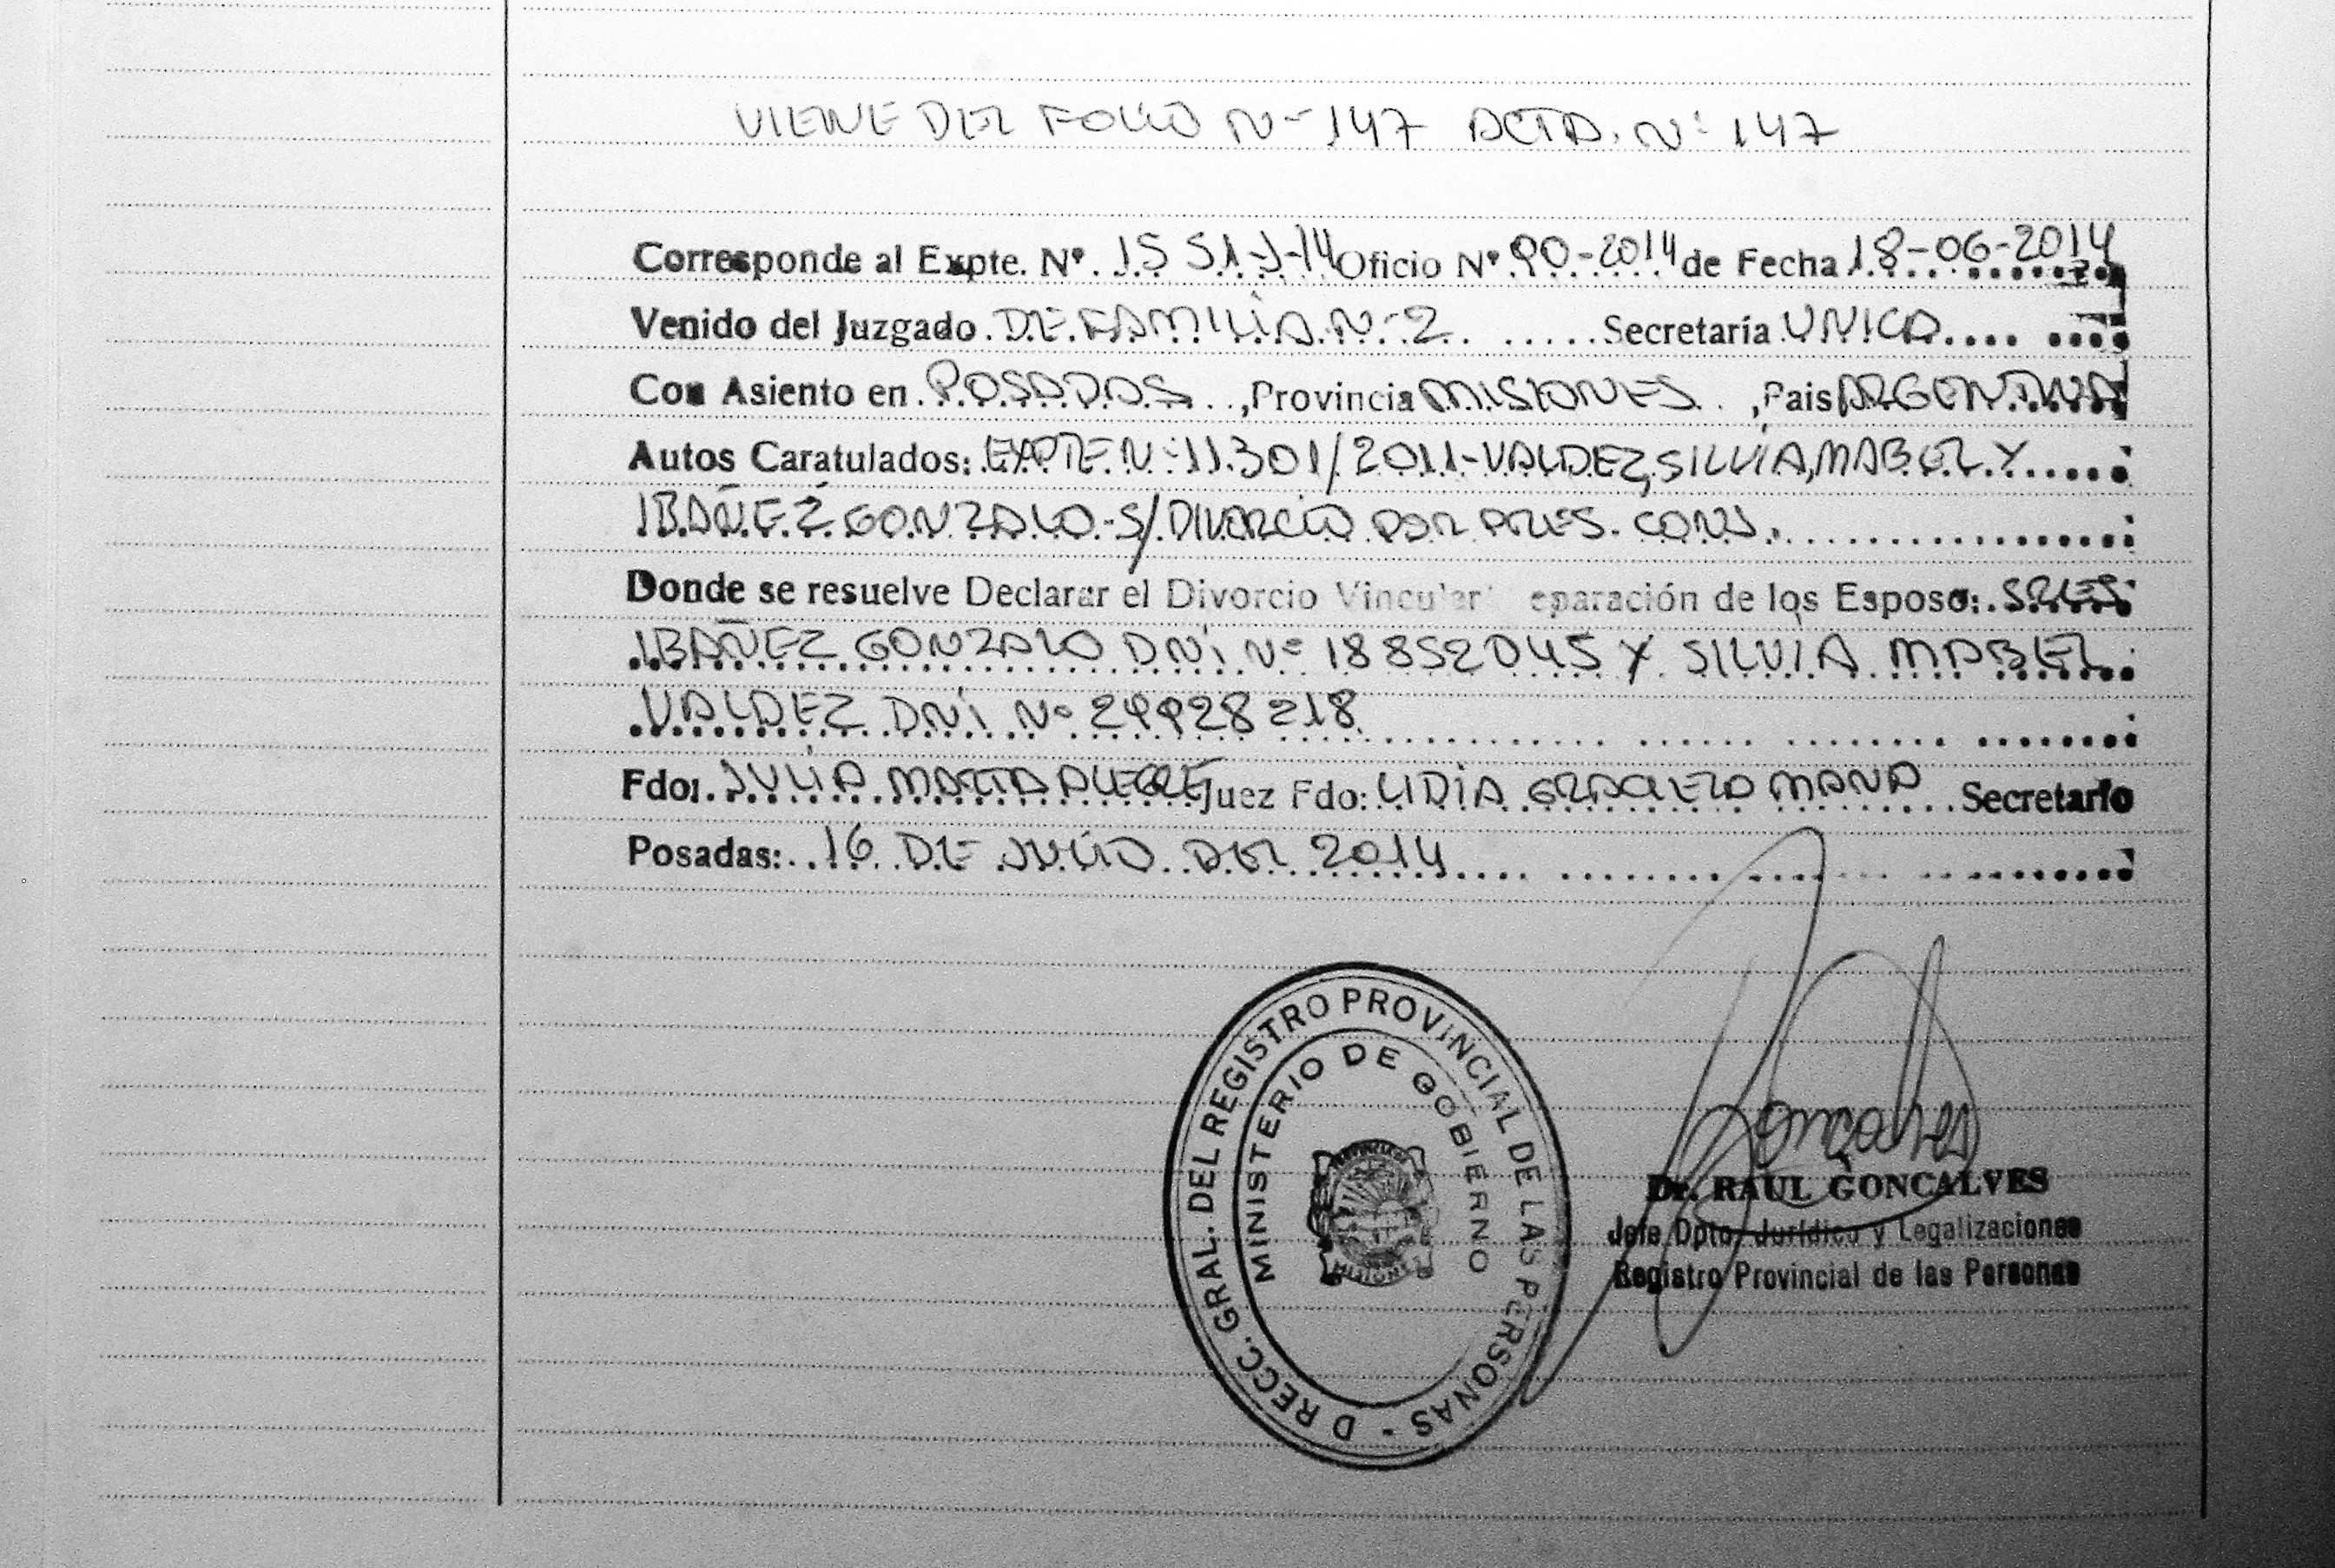 VIENE DEL FOLIO Nº 147 ACTA. Nº 147
Corresponde al Expte. Nº. 1551-J-14 Oficio Nº 90-2014 de Fecha 18-06-2014
Venido del Juzgado DE FAMILIA Nº 2 Secretaría UNICA
Con Asiento en POSADAS , Provincia MISIONES , Pais ARGENTINA
Autos Caratulados: EXPTE Nº 11.301/2011-VALDEZ, SILVIA, MABEL Y
IBAÑEZ GONZALO-S/DIVORCIO POR PRES. CONJ.
Donde se resuelve Declarar el Divorcio Vincular eparación de los Esposo: SRES
IBAÑEZ GONZALO DNI Nº 18852045 Y SILVIA MABEL
VALDEZ DNI Nº 24928218
Fdo: JULIA MARTA ALEGRE Juez Fdo: LIDIA GRACIELA Secretario
Posadas: 16 DE JULIO DEL 2014
D RECC. GRAL. DEL REGISTRO PROVINCIAL DE LAS PERSONAS -
MINISTERIO DE GOBIERNO
MISIONES
Goncalves
Dr. RAUL GONCALVES
Jefe Dpto. Jurídico y Legalizaciones
Registro Provincial de las Personas